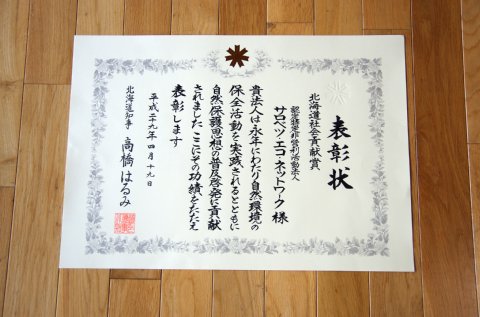 表彰状
北海道社会貢献賞
認定特定非営利活動法人
サロベツ・エコ・ネットワーク 様
貴法人は永年にわたり自然環境の
保全活動を実践されるとともに
自然保護思想の普及啓発に貢献
されました ここにその功績をたたえ
表彰します
平成二十九年四月十九日
北海道知事 高橋はるみ